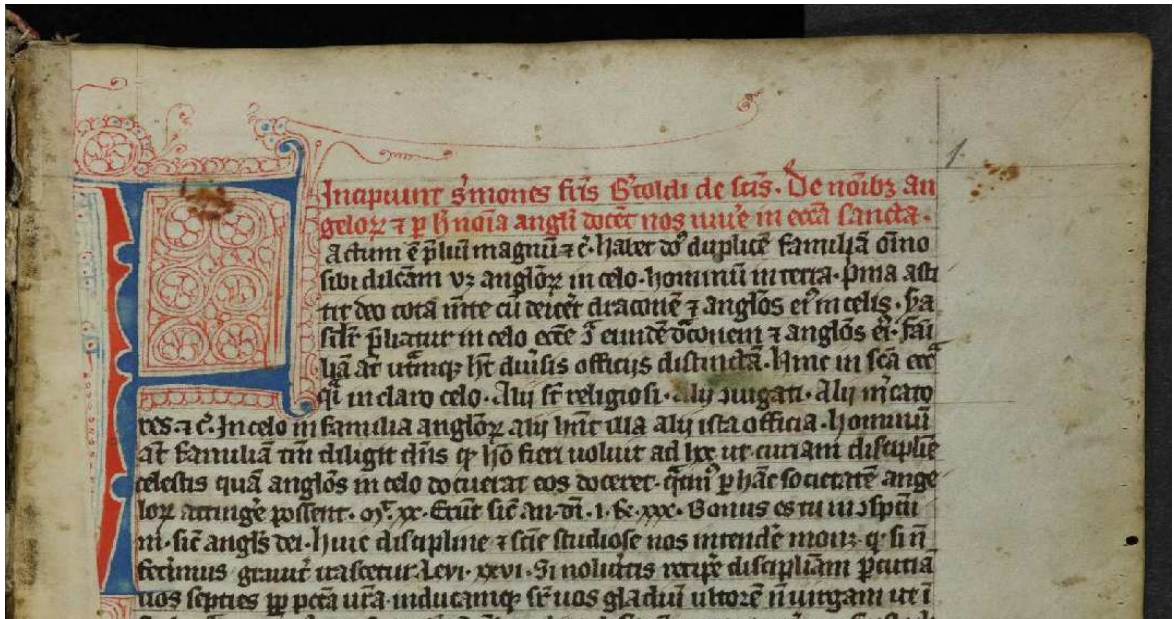 1.
Incipiunt s̄mones fr̄is B̄toldi de sc̄is. De noīb⁊ an
geloꝝ ⁊ p̱ h̄ noīa angl̄i docēt nos viu̾e in ecc̄a sancta.
F Actum ē p̄lium magnū ⁊ c̄. habet dn̄s duplicē familiā oīno
sibi dilc̄am vꝫ angl̄oꝝ in celo. hominū in terra. p̄ma asti
tit deo tota m̄te cū deicēt draconē ⁊ angl̄os ei᷒ in celis.
sil̄r p̄liatur in celo ecc̄e ꝯ̄ eundē d̾conem ⁊ angl̄os ei᷒. fāi
liā at̄ utramqꝫ hꝫ diu̾sis officijs distinctā. hinc in sc̄a ecc̄a
q̄i in claro celo. Alij st̄ religiosi. Alij ꝯiugati. Alij m̾cato
res. ⁊ c̄. In celo in familia angl̄oꝝ alij hn̄t illa alij ista officia. hominū
at̄ familiā tm̄ diligit dn̄s qꝫ hō fieri uoluit ad hoc ut curiam discipline
celestis quā angl̄os in celo docuerat eos doceret. p̱ hāc societatē ange
loꝝ attinge̾ possent. xx. Erūt sic̄ an. dī. i. ꝶ. xxx. Bonus es tu in ꝯspc̄tu
m̄. sic̄ angl̄s dei. huic discipline ⁊ sc̄ie studiose nos intende̾ monꝫ. q. si n̄
fecimus grauit̾ irascetur. Leui. xxvi. Si nolu̾itis recipe̾ disciplīam p̱cutiā
uos septies pp̄ pcc̄a ur̄a. inducamqꝫ sr̄ uos gladiū ultorē